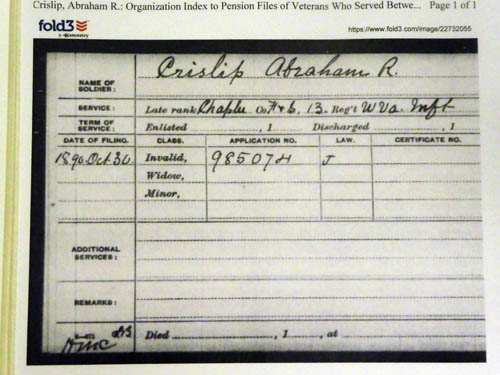 Crislip, Abraham R.: Organization Index to Pension Files of Veterans Who Served Betwe... Page 1 of 1
fold3
by ancestry
https://www.fold3.com/image/22732055
NAME OF SOLDIER: Crislip Abraham R.
SERVICE: Late rank Chapln Co. F & S, 13. Reg't W Va. Inft
TERM OF SERVICE: Enlisted , 1 Discharged , 1
DATE OF FILING. CLASS. APPLICATION NO. LAW. CERTIFICATE NO.
1890 Oct 30 Invalid, 985074 J
Widow,
Minor,
ADDITIONAL SERVICES:
REMARKS:
Died , 1 , at